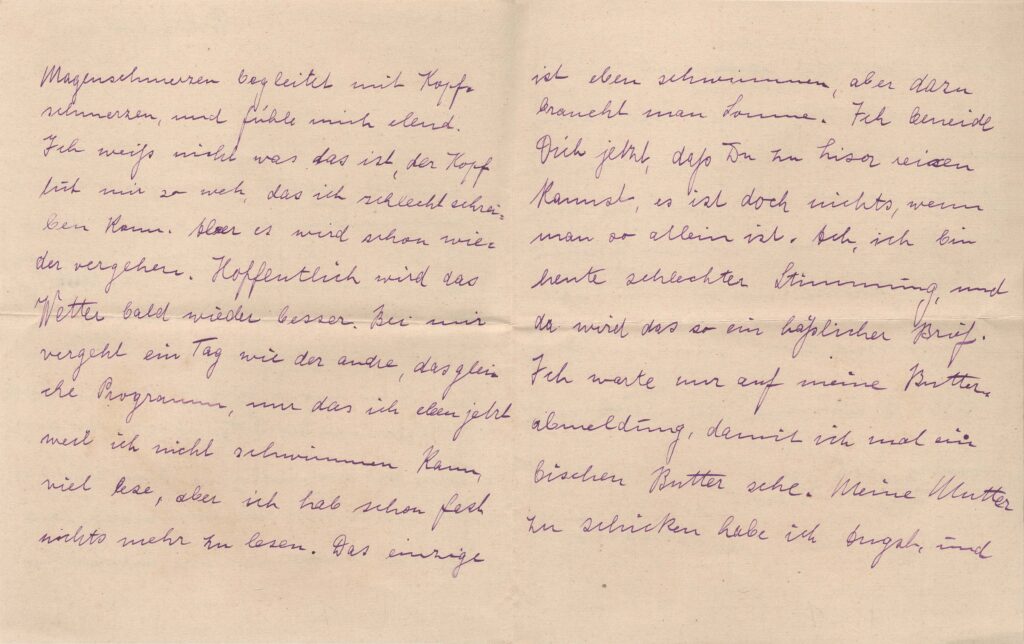 Magenschmerzen begleitet mit Kopf-
schmerzen, und fühle mich elend.
Ich weiß nicht was das ist, der Kopf
tut mir so weh, das ich schlecht schrei-
ben kann. Aber es wird schon wie-
der vergehen. Hoffentlich wird das
Wetter bald wieder besser. Bei mir
vergeht ein Tag wie der andre, das glei-
che Programm, nur das ich eben jetzt
weil ich nicht schwimmen kann,
viel lese, aber ich hab schon fast
nichts mehr zu lesen. Das einzige
ist eben schwimmen, aber dazu
braucht man Sonne. Ich beneide
Dich jetzt, daß Du zu reisen
kannst, es ist doch nichts, wenn
man so allein ist. Ach, ich bin
heute schlechter Stimmung, und
da wird das so ein häßlicher Brief.
Ich warte nur auf meine Butter-
abmeldung, damit ich mal ein
bischen Butter sehe. Meine Mutter
zu schicken habe ich Angst, und